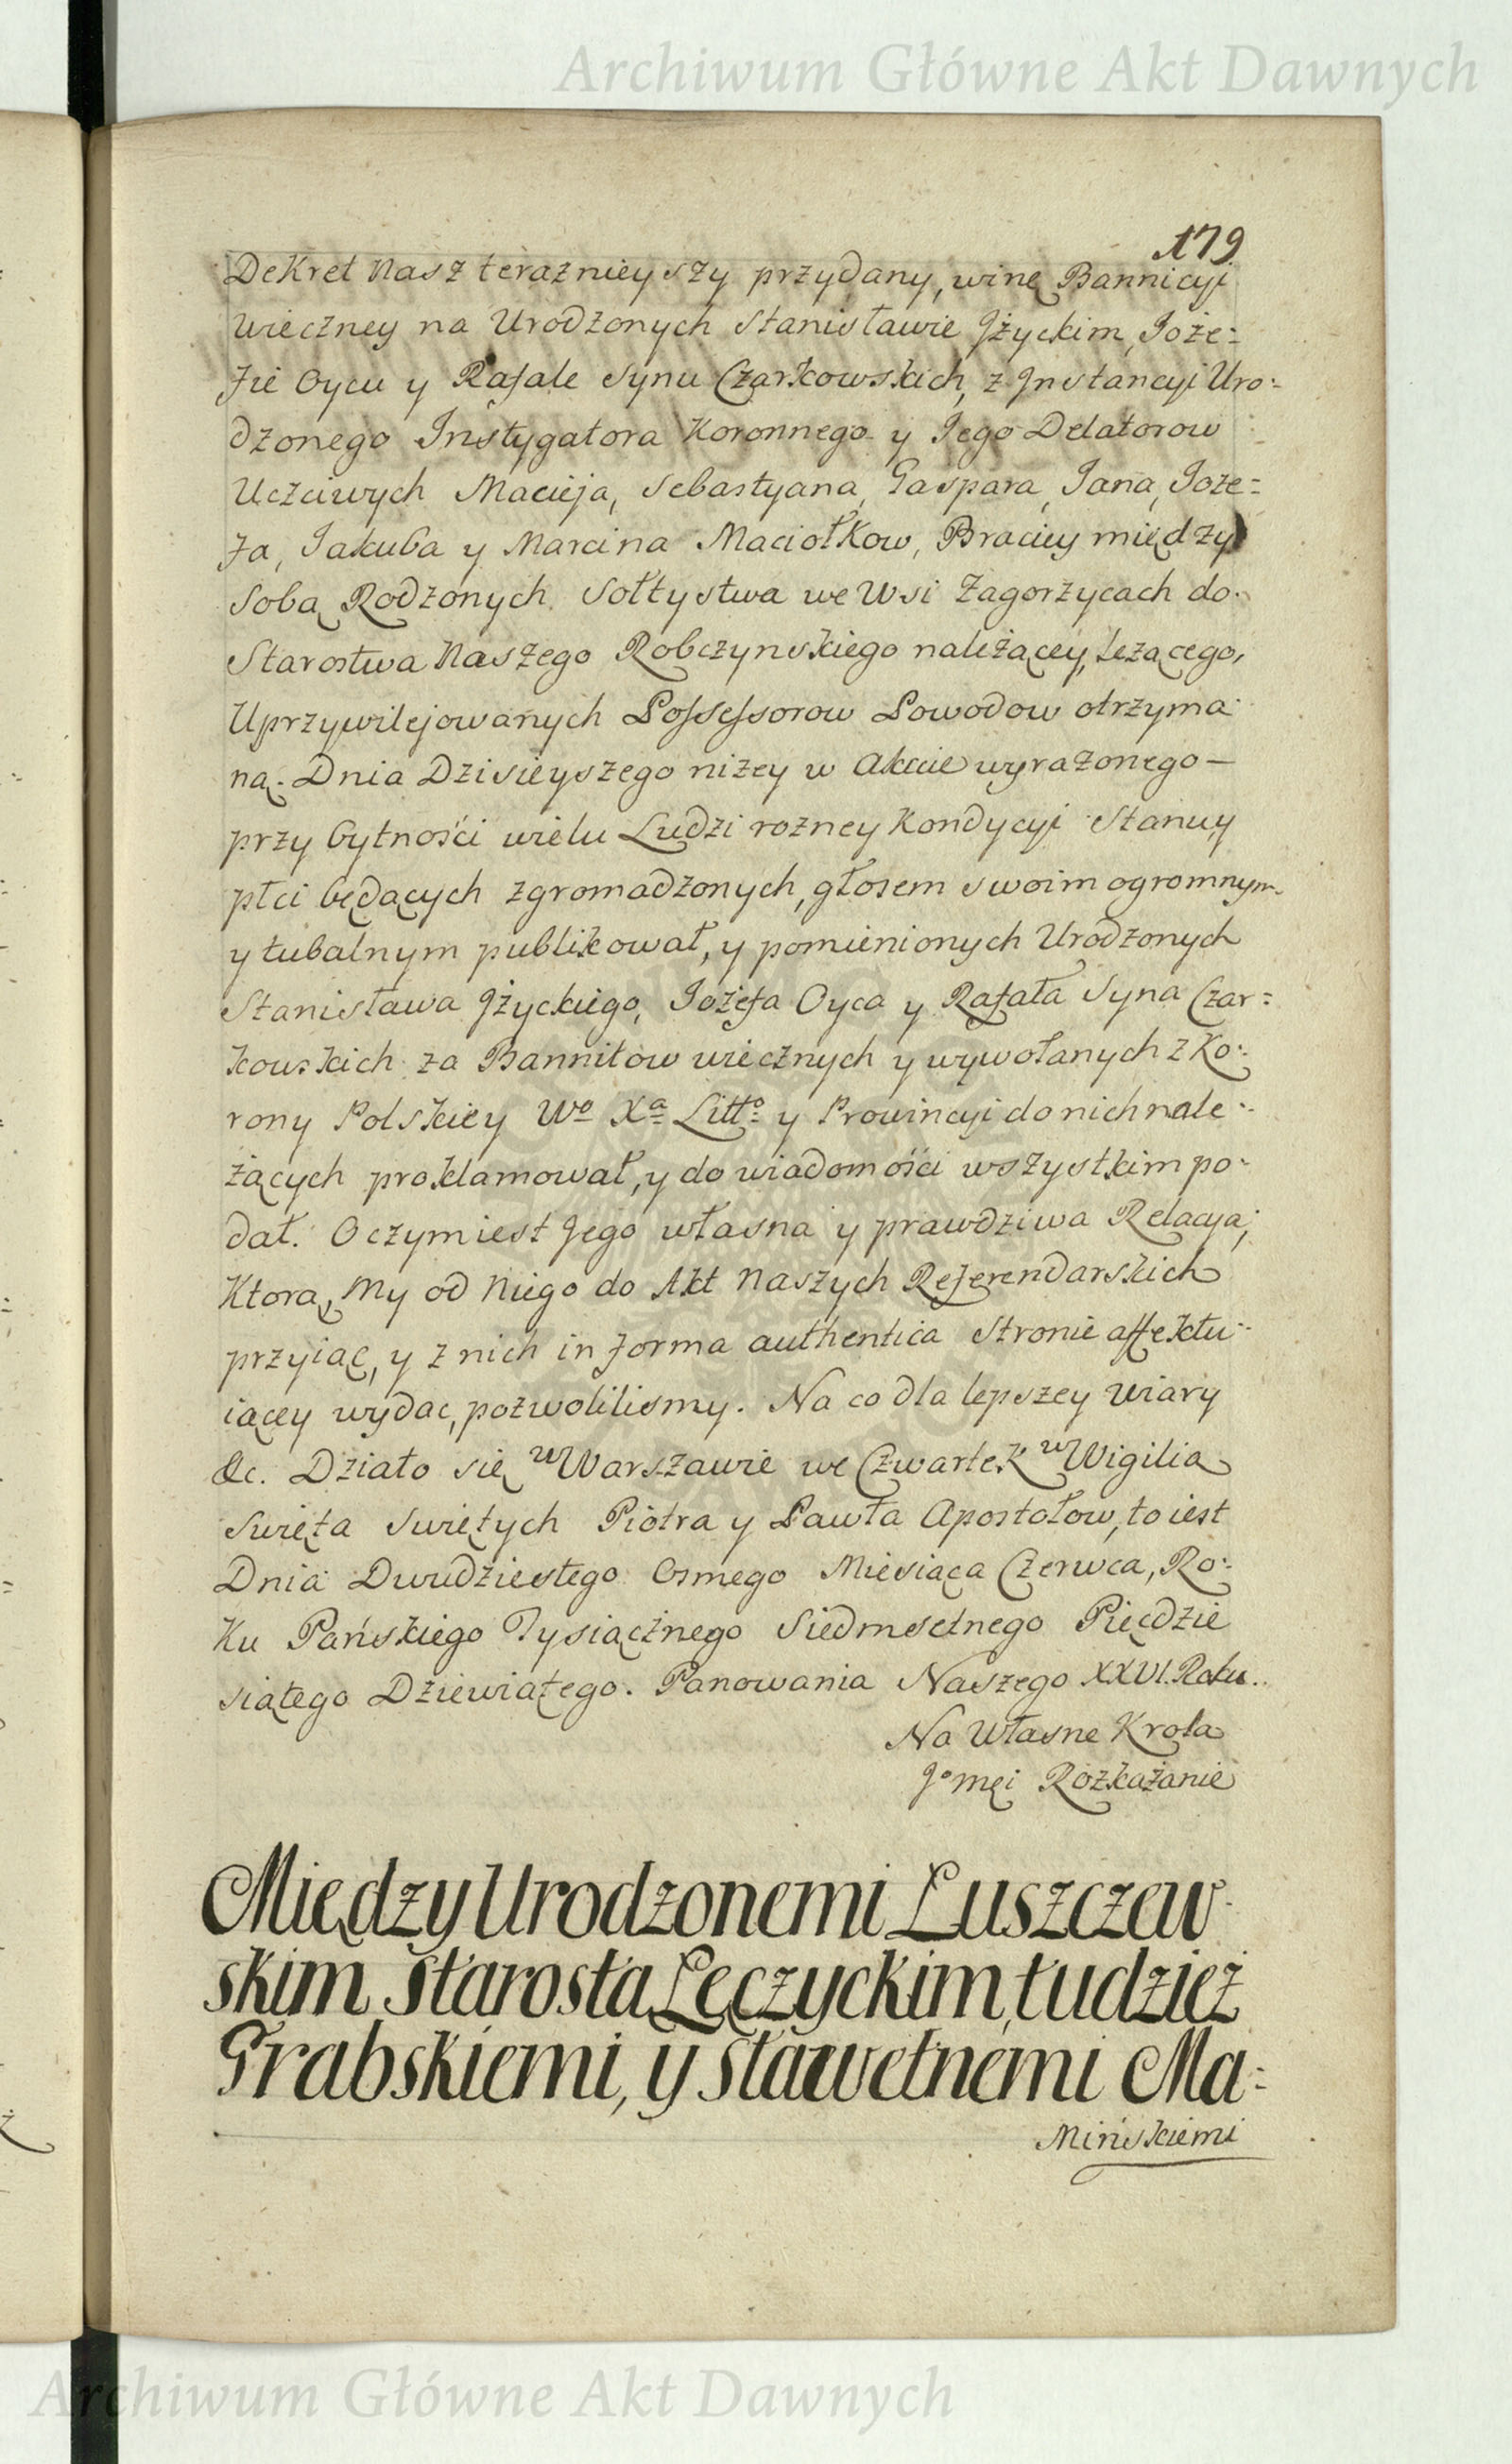 Archiwum Główne Akt Dawnych
179
Dekret Nasz teraznieyszy przydany, winę Bannicyi
wieczney na Urodzonych Stanisławie Jżyckim, Joże=
fie Oycu y Rafale Synu Czarkowskich, z Jnstancyi Uro=
dzonego Instygatora Koronnego y Jego Delatorow
Uczciwych Macieja, Sebastyana, Gaspara, Jana, Joze=
fa, Jakuba y Marcina Maciołkow, Braciey między
Sobą Rodzonych Sołtystwa we Wsi Zagorzycach do
Starostwa Naszego Robczynskiego należącey, leżącego,
Uprzywilejowanych Possessorow Powodow otrzyma
ną. Dnia Dzisieyszego niżey w Akcie wyrażonego —
przy bytności wielu Ludzi rozney Kondycyi Stanu, y
płci będących zgromadzonych, głosem swoim ogromnym
y tubalnym publikował, y pomienionych Urodzonych
Stanisława Jżyckiego, Jożefa Oyca y Rafała Syna Czar=
kowskich za Bannitow wiecznych y wywołanych z Ko=
rony Polskiey Wo Xa Litto y Prowincyi do nich nale=
żących proklamował, y do wiadomości wszystkim po=
dał. O czym iest Jego własna y prawdziwa Relacya;
Ktorą, My od Niego do Akt Naszych Referendarskich
przyiąć, y z nich in forma authentica Stronie affektu=
iącey wydac, pozwolilismy. Na co dla lepszey wiary
&c. Działo się w Warszawie we Czwartek w Wigilia
Swięta Swiętych Piotra y Pawła Apostołow, to iest
Dnia Dwudziestego Osmego Miesiąca Czerwca, Ro=
Ku Pańskiego Tysiącznego Siedmsetnego Pięcdzie
siątego Dziewiątego. Panowania Naszego XXVI. Roku..
Na Własne Krola
Jo mci Rozkazanie
Między Urodzonemi Łuszczew=
skim Starostą Łęczyckim, tudzież
Grabskiemi, y Sławetnemi Ma=
Mińskiemi
Archiwum Główne Akt Dawnych